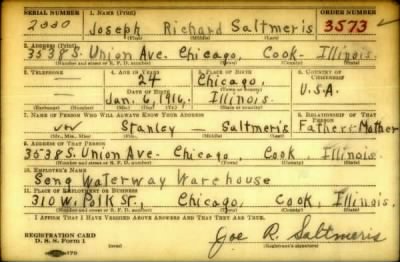 SERIAL NUMBER 1. NAME (Print) ORDER NUMBER
2330 Joseph Richard Saltmeris 3573
(First) (Middle) (Last)
2. ADDRESS (Print)
3538 S. Union Ave. Chicago, Cook- Illinois.
(Number and street or R. F. D. number) (Town) (County) (State)
3. TELEPHONE 4. AGE IN YEARS 5. PLACE OF BIRTH 6. COUNTRY OF CITIZENSHIP
— 24 Chicago,
DATE OF BIRTH
— Jan. 6, 1916, Illinois. U.S.A.
(Exchange) (Number) (Mo.) (Day) (Yr.) (State or country)
7. NAME OF PERSON WHO WILL ALWAYS KNOW YOUR ADDRESS 8. RELATIONSHIP OF THAT PERSON
Stanley — Saltmeris Father: Mother
(Mr., Mrs., Miss) (First) (Middle) (Last)
9. ADDRESS OF THAT PERSON
3538 S. Union Ave- Chicago, Cook, Illinois.
(Number and street or R. F. D. number) (Town) (County) (State)
10. EMPLOYER'S NAME
Seng Waterway Warehouse
11. PLACE OF EMPLOYMENT OR BUSINESS
310 W. Polk St., Chicago, Cook, Illinois.
(Number and street or R. F. D. number) (Town) (County) (State)
I AFFIRM THAT I HAVE VERIFIED ABOVE ANSWERS AND THAT THEY ARE TRUE.
REGISTRATION CARD
D. S. S. Form 1 (over) Joe R. Saltmeris
(Registrant's signature)